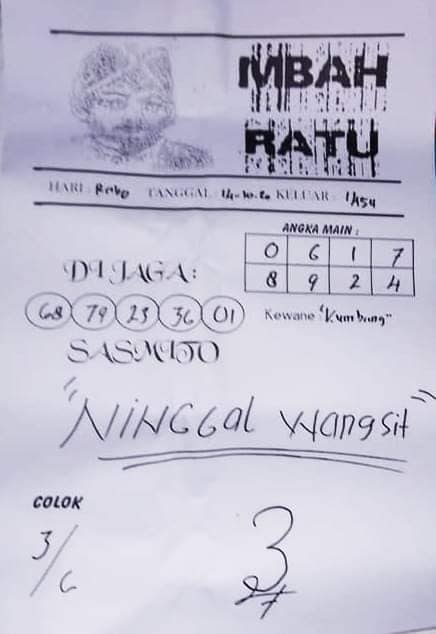 MBAH
RATU
HARI : Rabo TANGGAL : 14-10-20 KELUAR : 1454
ANGKA MAIN :
0 6 1 7
8 9 2 4
DI JAGA :
68 79 23 36 01
Kewane "Kumbang"
SASMITO
"NINGGal Wangsit"
COLOK
3/6
3